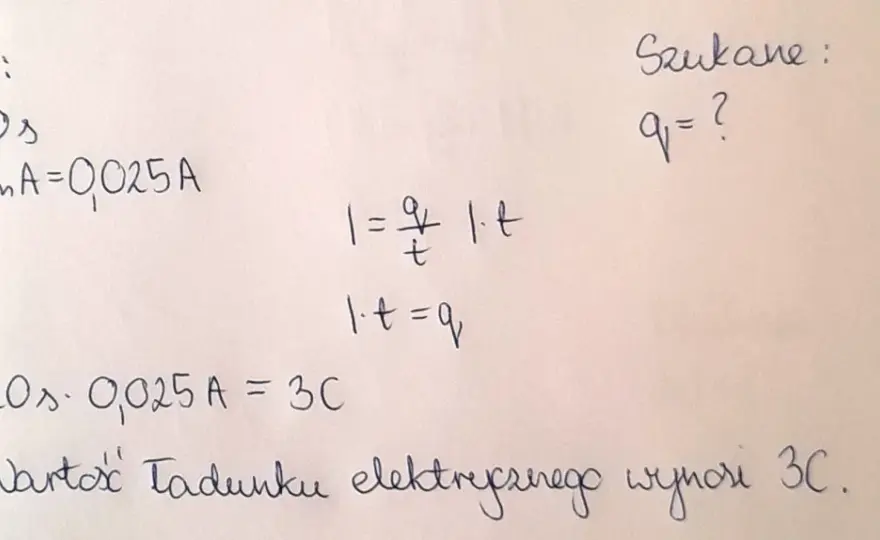 Szukane:
:
0s
q = ?
mA = 0,025A
I = q/t |·t
I·t = q
20s · 0,025A = 3C
Wartość ładunku elektrycznego wynosi 3C.